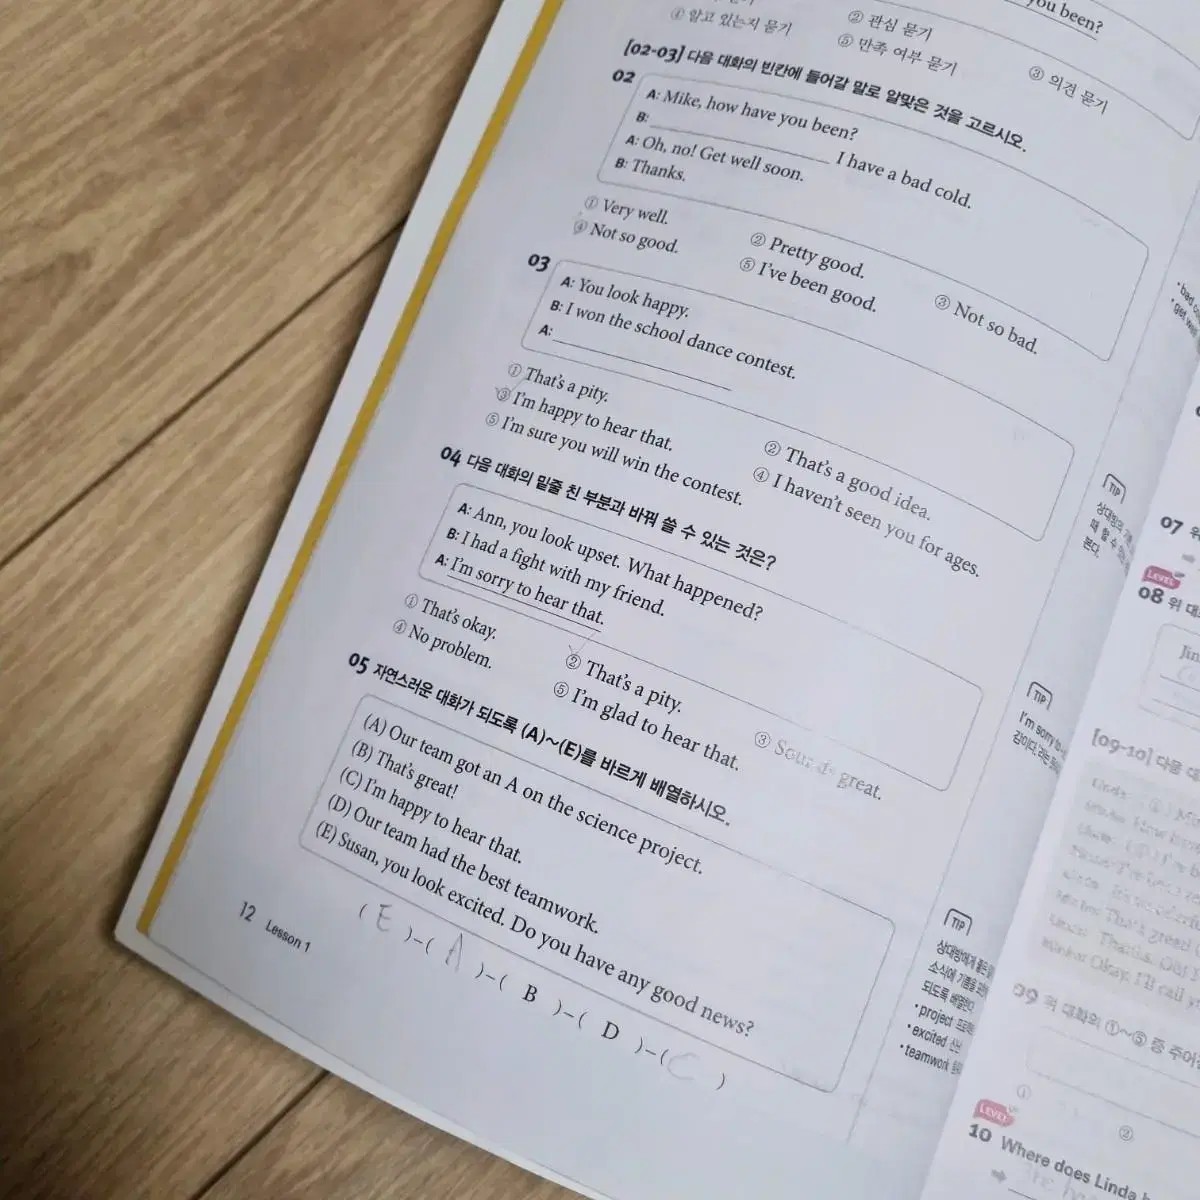 you been?
④ 알고 있는지 묻기
② 관심 묻기
⑤ 만족 여부 묻기
③ 의견 묻기
[02-03] 다음 대화의 빈칸에 들어갈 말로 알맞은 것을 고르시오.
02
A: Mike, how have you been?
B: ____________ I have a bad cold.
A: Oh, no! Get well soon.
B: Thanks.
① Very well.
② Pretty good.
③ Not so bad.
④ Not so good.
⑤ I've been good.
03
A: You look happy.
B: I won the school dance contest.
A: ____________
① That's a pity.
② That's a good idea.
③ I'm happy to hear that.
④ I haven't seen you for ages.
⑤ I'm sure you will win the contest.
04 다음 대화의 밑줄 친 부분과 바꿔 쓸 수 있는 것은?
A: Ann, you look upset. What happened?
B: I had a fight with my friend.
A: I'm sorry to hear that.
① That's okay.
② That's a pity.
③ Sounds great.
④ No problem.
⑤ I'm glad to hear that.
05 자연스러운 대화가 되도록 (A)~(E)를 바르게 배열하시오.
(A) Our team got an A on the science project.
(B) That's great!
(C) I'm happy to hear that.
(D) Our team had the best teamwork.
(E) Susan, you look excited. Do you have any good news?
( E )-( A )-( B )-( D )-( C )
12 Lesson 1
TIP
상대방의
때 할 수
본다.
TIP
I'm sorry to
TIP
상대방에게
소식에 기쁨을
되도록 배열한다.
• project
• excited
• teamwork
• get well
07
LEVEL
08 위 대
Jin
[09-10] 다음 대
09 위 대화의 ①~⑤ 중 주어
①
②
LEVEL
10 Where does Linda